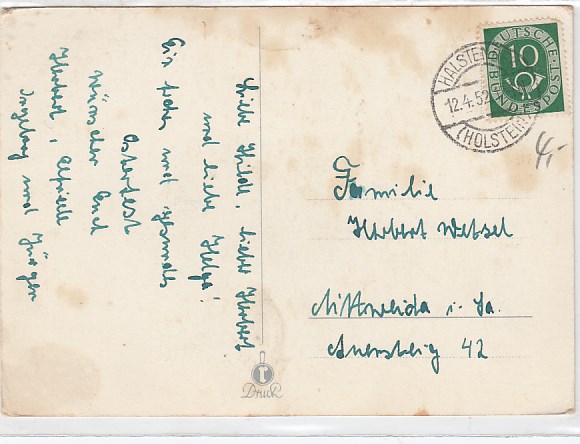 Liebe Hilde, lieber Herbert
und liebe Helga!
Ein frohes und gesundes
Osterfest
wünschen Euch
Herbert, Elfriede
Ingeborg und Jürgen
DEUTSCHE
BUNDESPOST
10
HALSTEN
12.4.52
(HOLSTEIN)
4,-
Familie
Herbert Wetzel
Mittweida i. Sa.
Auersberg 42
Druck